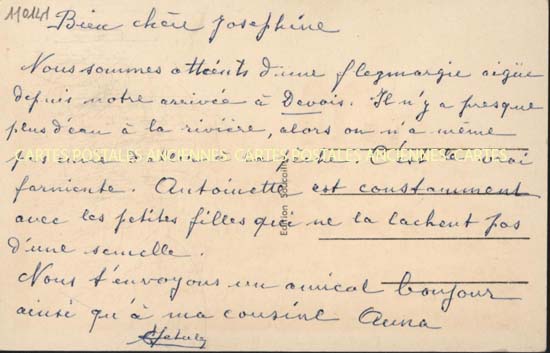 110141
Bien chère Josephine
Nous sommes attéints d'une flegmargie aigüe
depuis notre arrivée à Devois. Il n'y a presque
plus d'eau à la rivière, alors on n'a même
CARTES POSTALES ANCIENNES CARTES POSTALES ANCIENNES CARTES
pas à la C'est le vrai
farniente. Antoinette est constamment
avec les petites filles qui ne la lâchent pas
d'une semelle.
Nous t'envoyons un amical bonjour
ainsi qu'à ma cousine Anna
Edition